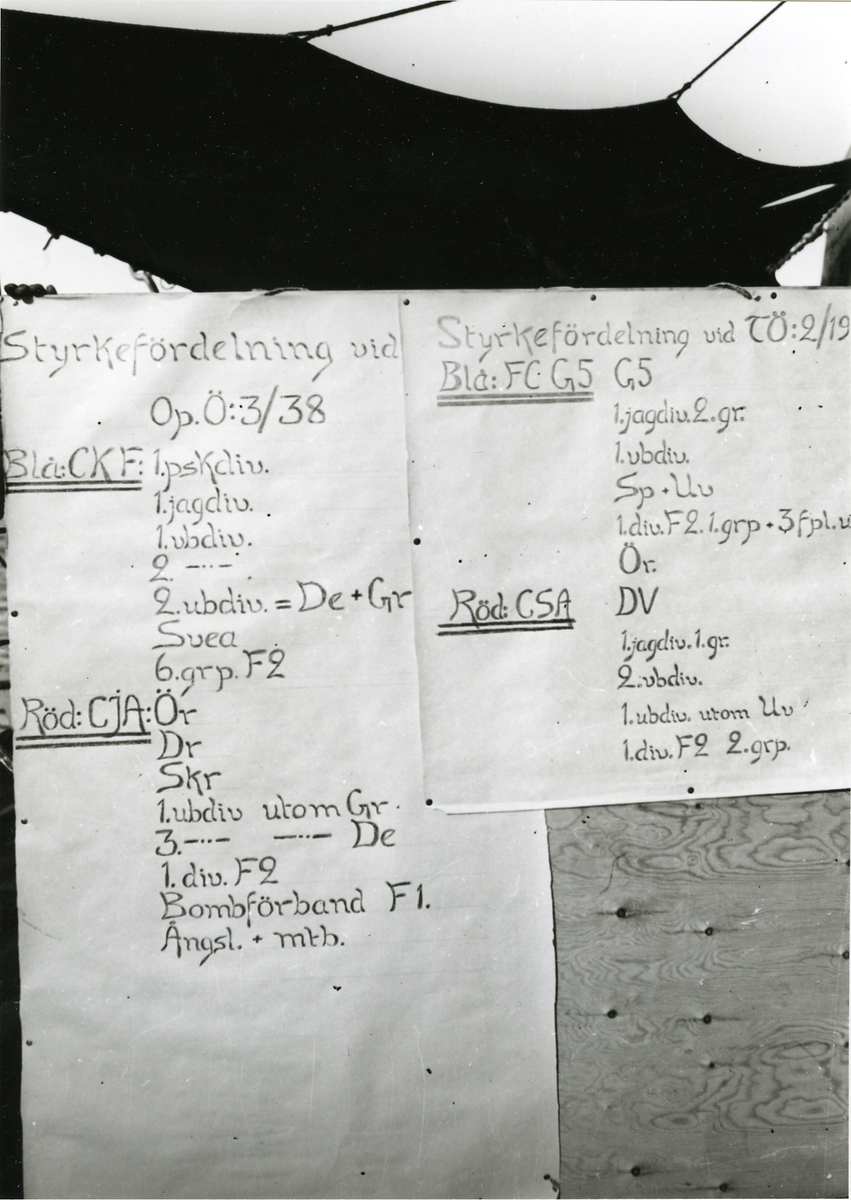 Styrkefördelning vid
Op.Ö:3/38
Blå: CKF: 1.pskdiv.
1.jagdiv.
1.vbdiv.
2. -··-
2.ubdiv. = De + Gr
Svea
6.grp. F2
Röd: CJA: Ör
Dr
Skr
1.ubdiv utom Gr.
3.-··- -··- De
1. div. F2
Bombförband F1.
Ångsl. + mtb.
Styrkefördelning vid TÖ:2/19
Blå: FC G5 G5
1.jagdiv.2.gr.
1.vbdiv.
Sp + Uv
1.div.F2.1.grp + 3 fpl.
Ör.
Röd: CSA DV
1.jagdiv.1.gr.
2.vbdiv.
1.ubdiv. utom Uv
1.div. F2 2.grp.